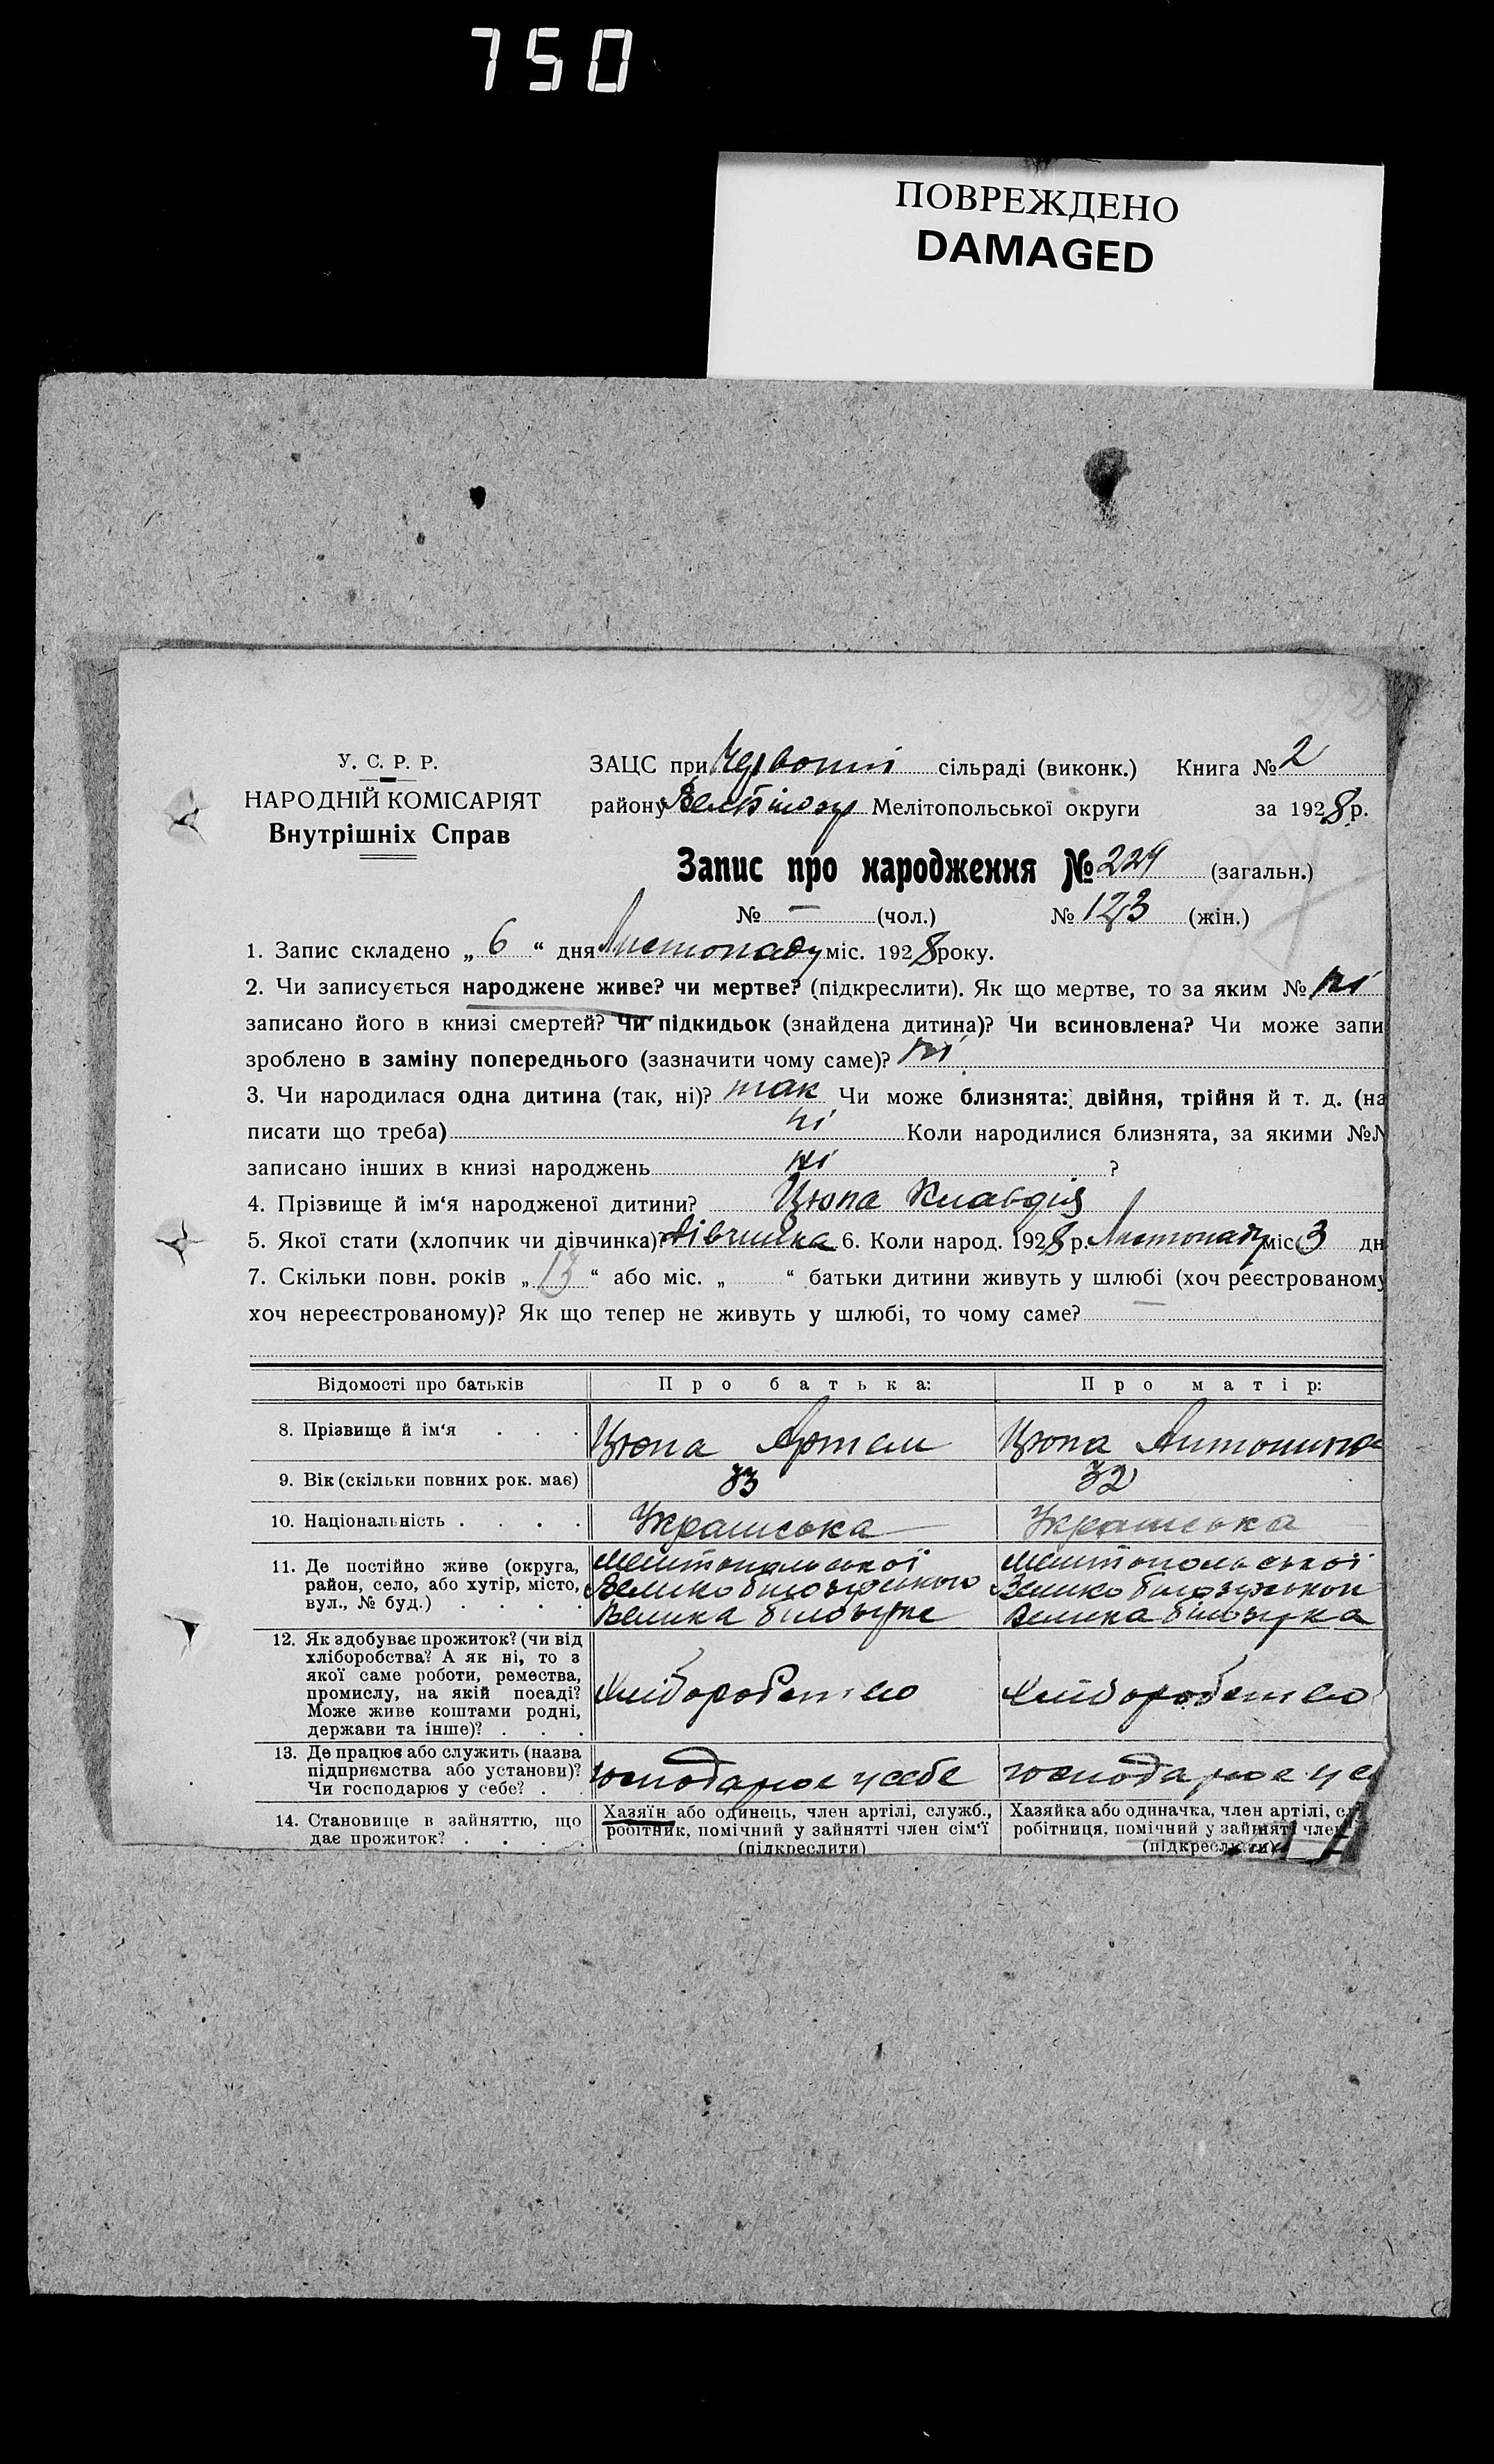 750
ПОВРЕЖДЕНО
DAMAGED
У. С. Р. Р.
НАРОДНІЙ КОМІСАРІЯТ
Внутрішніх Справ
ЗАЦС при Червоній сільраді (виконк.) Книга № 2
району Мелітопольської округи за 1928 р.
Запис про народження № 224 (загальн.)
№ — (чол.) № 123 (жін.)
1. Запис складено „ 6 “ дня Листопаду міс. 1928 року.
2. Чи записується народжене живе? чи мертве? (підкреслити). Як що мертве, то за яким № ні
записано його в книзі смертей? Чи підкидьок (знайдена дитина)? Чи всиновлена? Чи може запи
зроблено в заміну попереднього (зазначити чому саме)? ні
3. Чи народилася одна дитина (так, ні)? так Чи може близнята: двійня, трійня й т. д. (на
писати що треба) ні Коли народилися близнята, за якими №№
записано інших в книзі народжень ні ?
4. Прізвище й ім‘я народженої дитини? Цюпа Клавдія
5. Якої стати (хлопчик чи дівчинка)? дівчинка 6. Коли народ. 1928 р. Листопаду міс. 3 дн
7. Скільки повн. років „ 13 “ або міс. „ “ батьки дитини живуть у шлюбі (хоч реєстрованому
хоч нереєстрованому)? Як що тепер не живуть у шлюбі, то чому саме? —
Відомості про батьків Про батька: Про матір:
8. Прізвище й ім‘я . . . Цюпа Артем Цюпа Антонина
9. Вік (скільки повних рок. має) 33 32
10. Національність . . . . Українська Українська
11. Де постійно живе (округа, Мелітопольської Мелітопольської
район, село, або хутір, місто, Великобілозерського
вул., № буд.) . . . . Велика Білозерка
12. Як здобуває прожиток? (чи від
хліборобства? А як ні, то з
якої саме роботи, ремества,
промислу, на якій посаді? Хліборобство Хліборобство
Може живе коштами родні,
держави та інше)? . . .
13. Де працює або служить (назва
підприємства або установи)? господарює у себе господарює у се
Чи господарює у себе? . .
14. Становище в зайняттю, що Хазяїн або одинець, член артілі, служб., Хазяйка або одиначка, член артілі, с
дає прожиток? . . . . робітник, помічний у зайнятті член сім‘ї робітниця, помічний у зайнятті член
(підкреслити) (підкреслити)